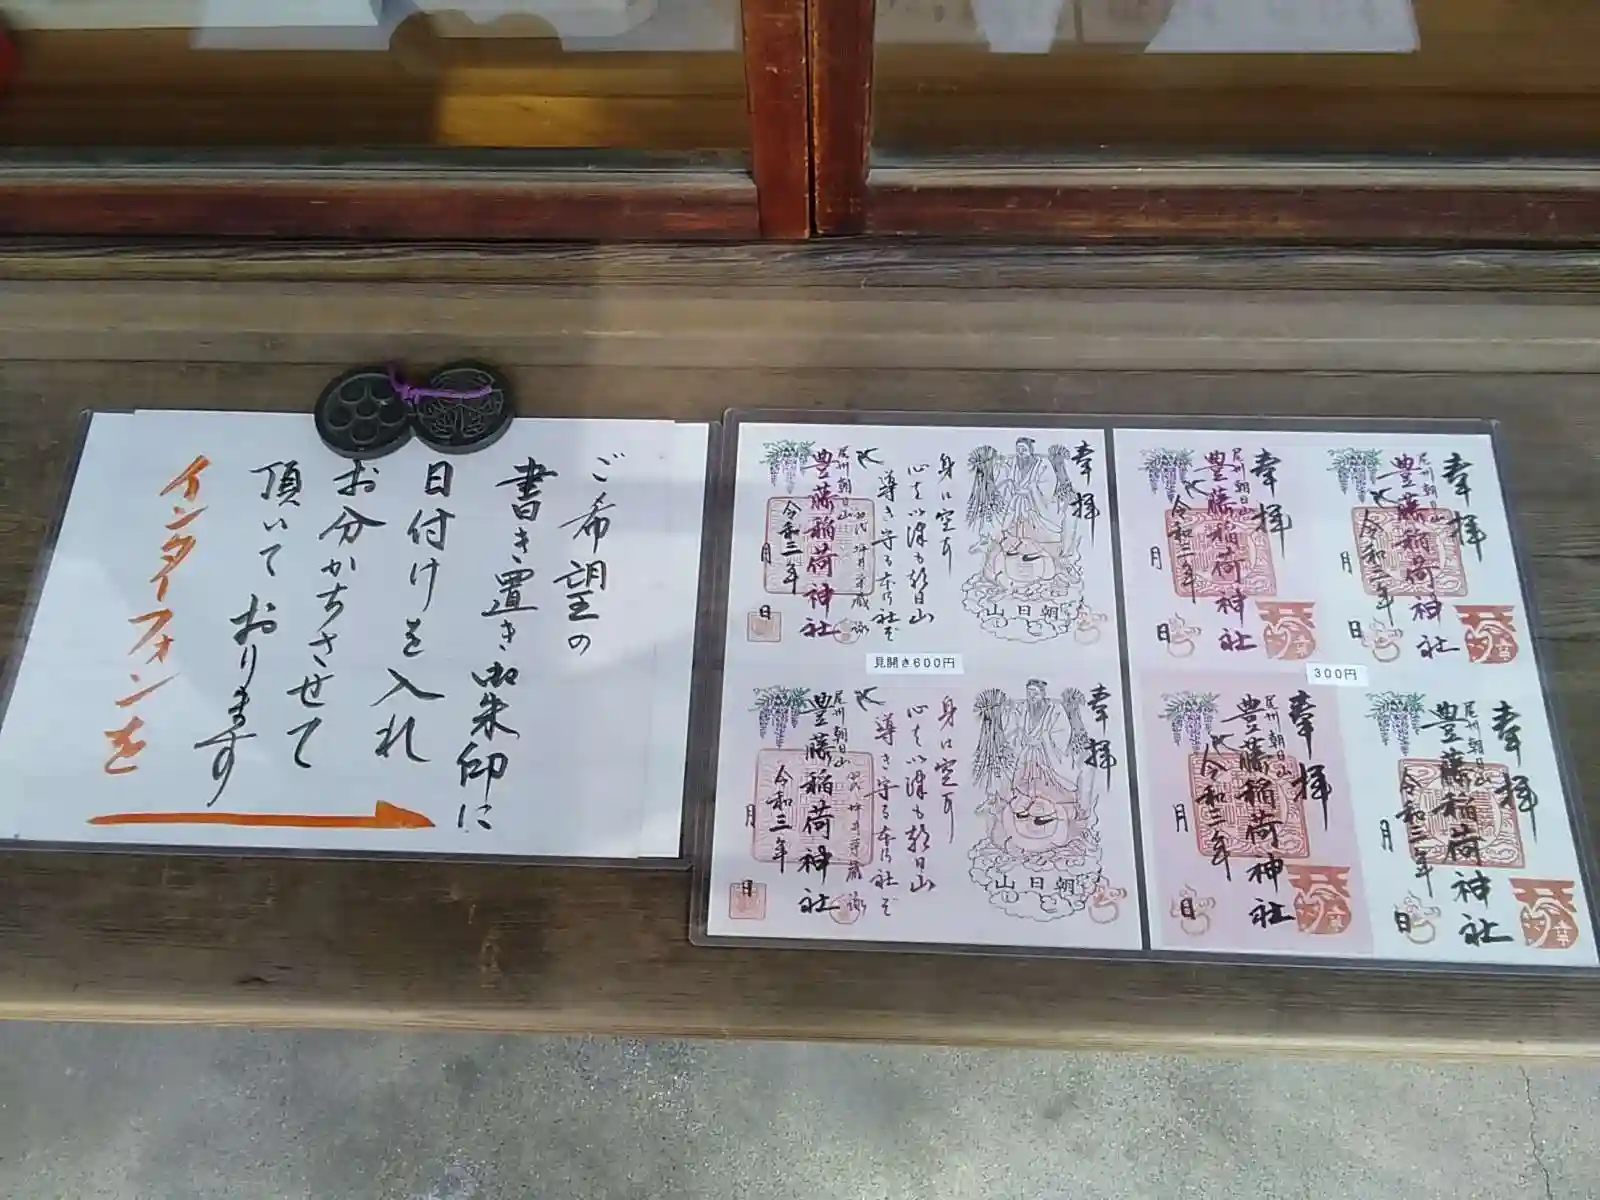 ご希望の
書き置き御朱印に
日付けを入れ
お分かちさせて
頂いて おります
インターフォンを
奉拝
朝日山
身は空有
心を以
導き守る
社ぞ
尾州朝日山
豊藤稲荷神社
令和三年
月
日
見開き600円
奉拝
朝日山
身は空有
心を以
導き守る
社ぞ
尾州朝日山
豊藤稲荷神社
令和三年
月
日
奉拝
尾州朝日山
豊藤稲荷神社
令和三年
月
日
奉拝
尾州朝日山
豊藤稲荷神社
令和三年
月
日
300円
奉拝
尾州朝日山
豊藤稲荷神社
令和三年
月
日
奉拝
尾州朝日山
豊藤稲荷神社
令和三年
月
日